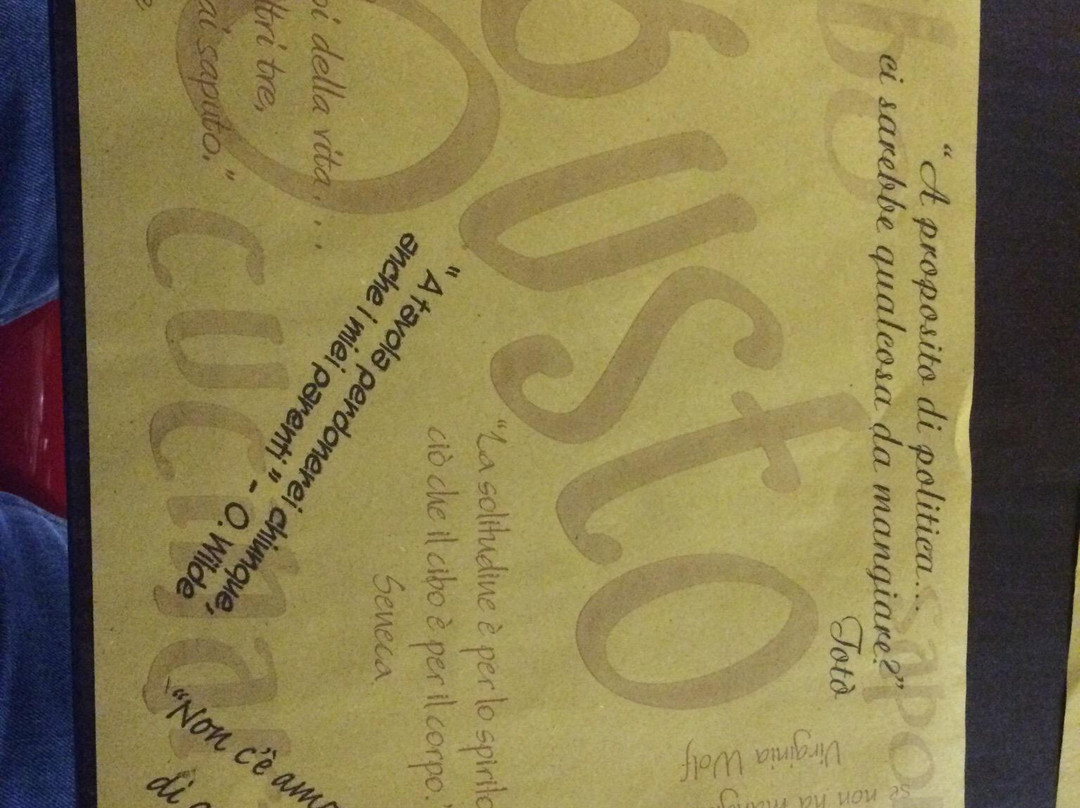 "A proposito di politica...
ci sarebbe qualcosa da mangiare?"
Totò
sapo
gusto
Virginia Wolf
se non ha
"La solitudine è per lo spirito
ciò che il cibo è per il corpo."
Seneca
"A tavola perdonerei chiunque,
anche i miei parenti" - O. Wilde
della vita...
tre,
saputo."
cucina
"Non c'è
di